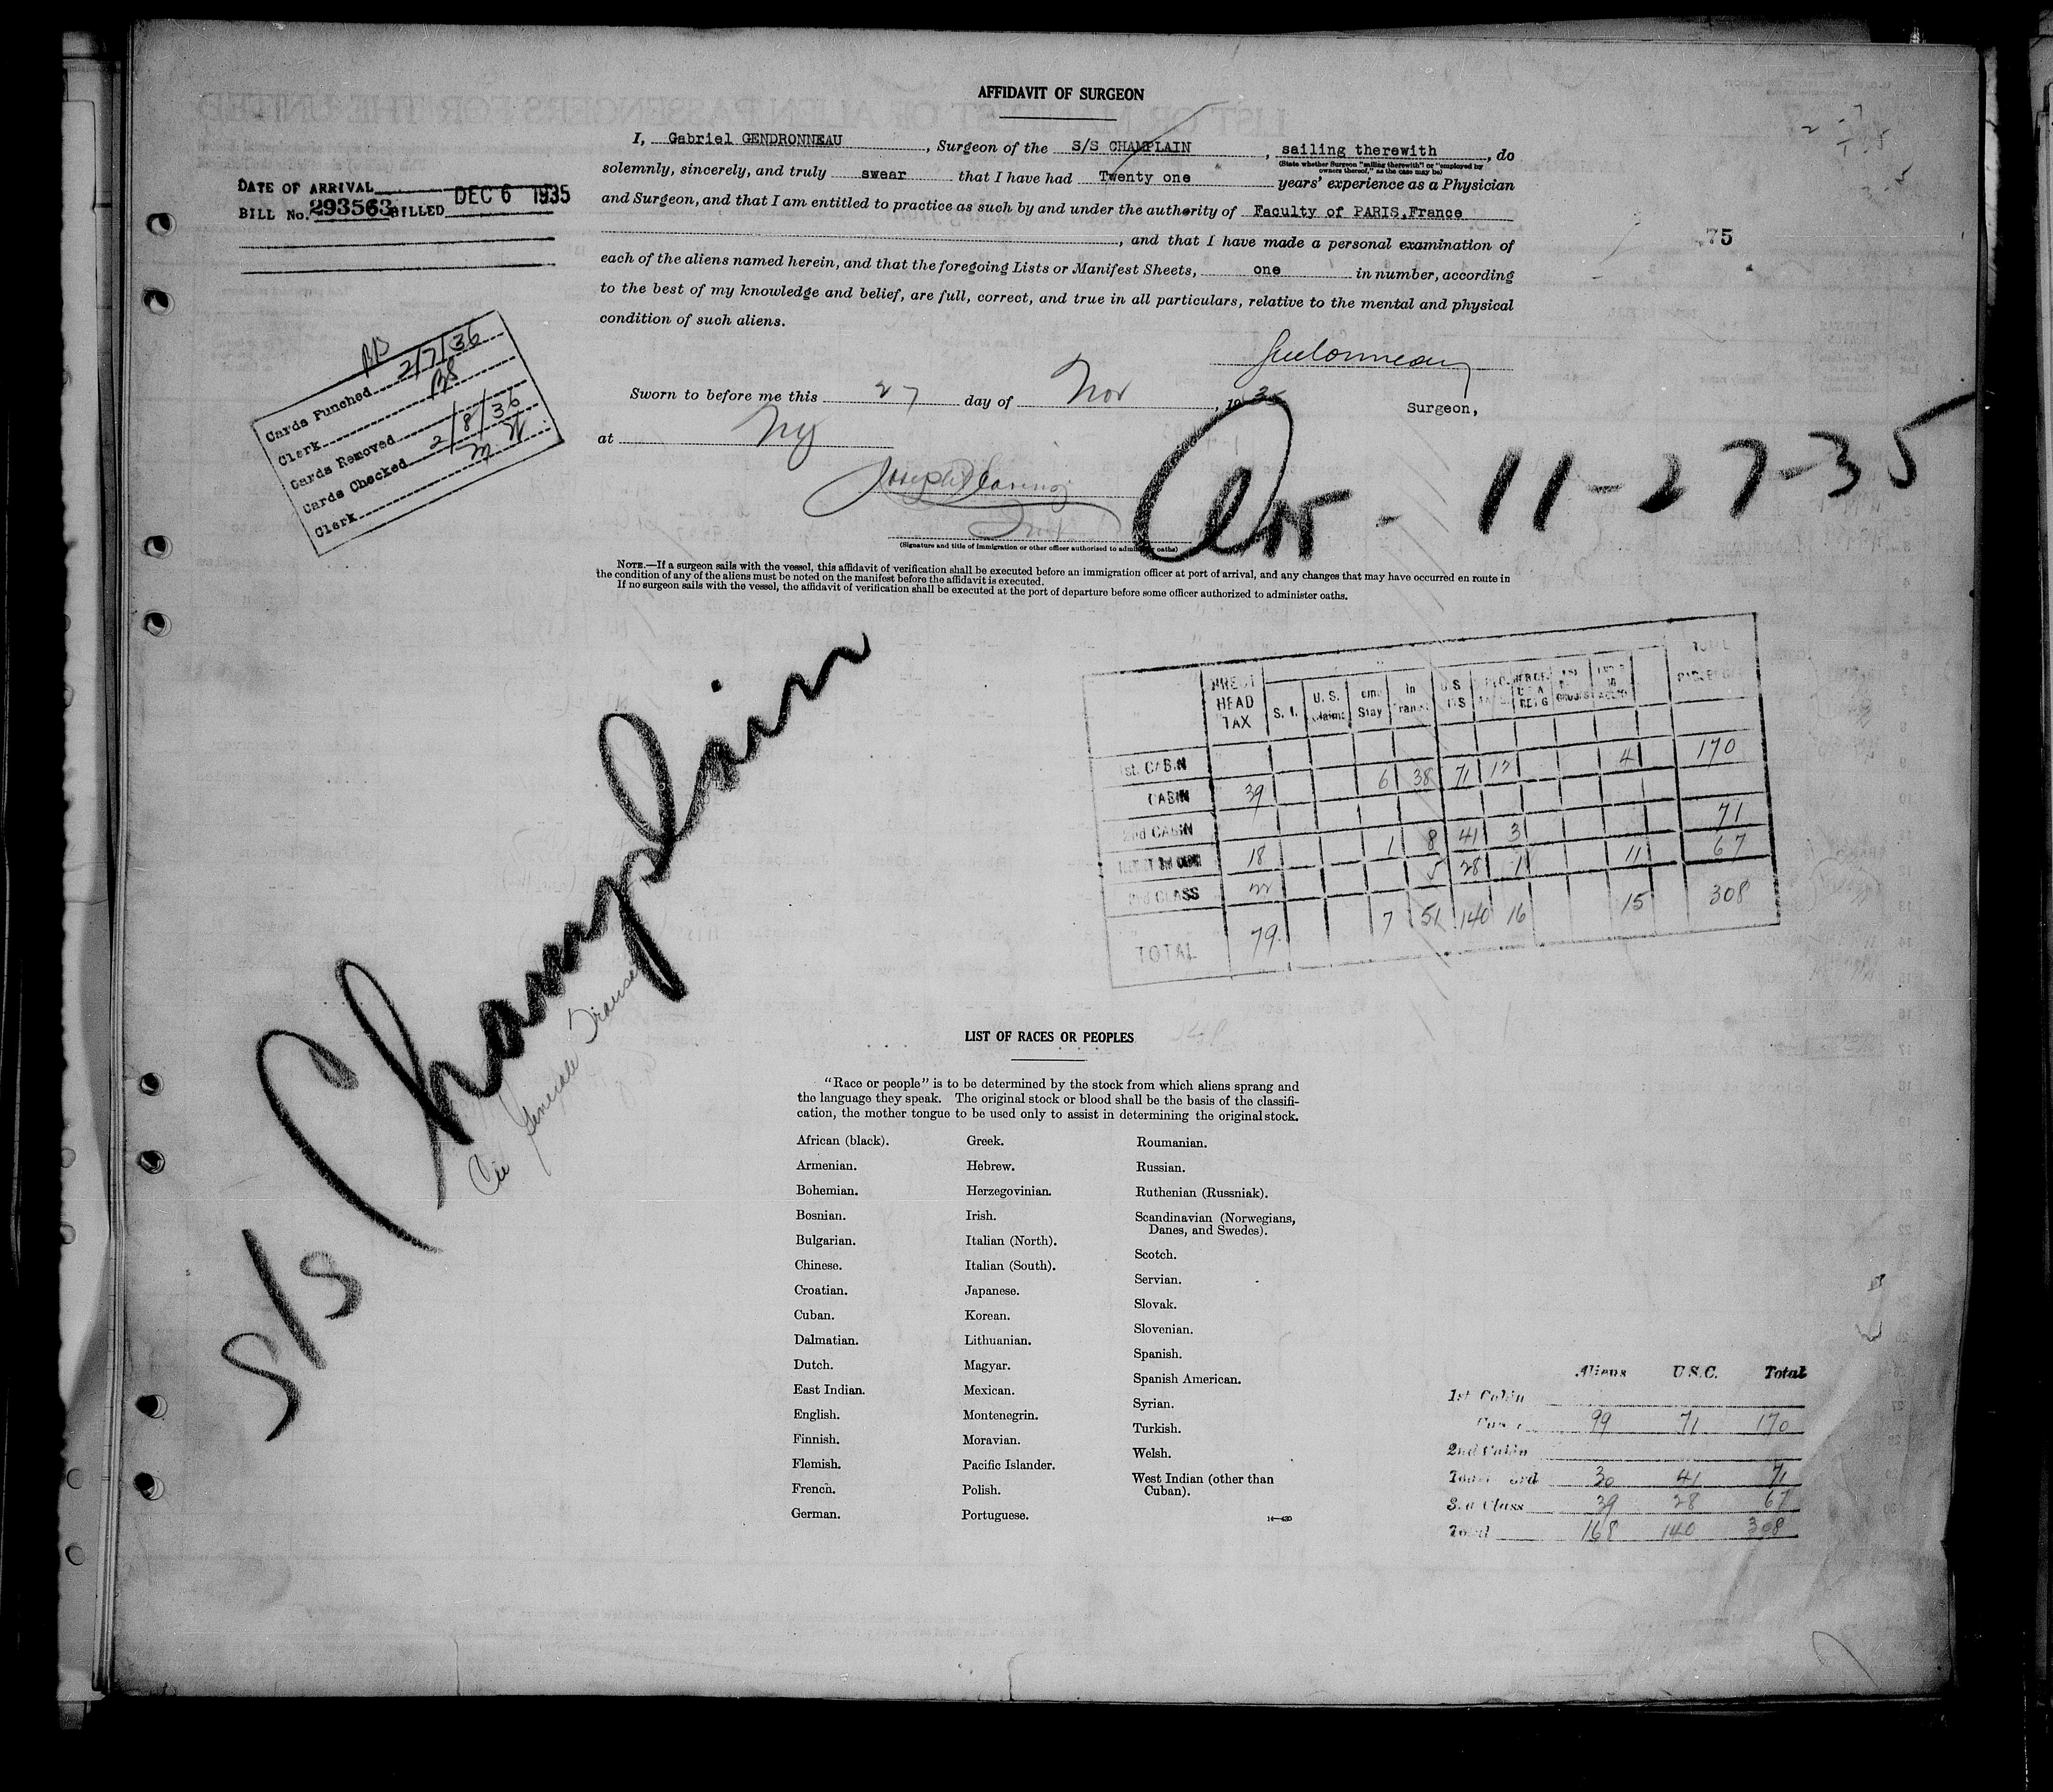 AFFIDAVIT OF SURGEON
I, Gabriel GENDRONNEAU, Surgeon of the S/S CHAMPLAIN, sailing therewith, do
(State whether Surgeon "sailing therewith" or "employed by
owners thereof," as the case may be)
solemnly, sincerely, and truly swear that I have had Twenty one years' experience as a Physician
and Surgeon, and that I am entitled to practice as such by and under the authority of Faculty of PARIS,France
, and that I have made a personal examination of
each of the aliens named herein, and that the foregoing Lists or Manifest Sheets, one in number, according
to the best of my knowledge and belief, are full, correct, and true in all particulars, relative to the mental and physical
condition of such aliens.
DATE OF ARRIVAL
BILL No. 293563 BILLED DEC 6 1935
75
Sworn to before me this 27 day of Nov, 1935
Surgeon,
at NY
(Signature and title of immigration or other officer authorized to administer oaths)
Arr - 11-27-35
Cards Punched 2/7/36
Clerk BS
Cards Removed
Cards Checked 2/8/36
Clerk
NOTE.—If a surgeon sails with the vessel, this affidavit of verification shall be executed before an immigration officer at port of arrival, and any changes that may have occurred en route in
the condition of any of the aliens must be noted on the manifest before the affidavit is executed.
If no surgeon sails with the vessel, the affidavit of verification shall be executed at the port of departure before some officer authorized to administer oaths.
S/S Champlain
Cie Generale
HEAD TAX S. I. U. S. Stay In U S TOTAL
1st. CABIN
CABIN 39 6 38 71 12 4 170
2nd CABIN
18 1 8 41 3 71
3rd CLASS 22 5 28 1 11 67
TOTAL 79 7 51 140 16 15 308
LIST OF RACES OR PEOPLES
"Race or people" is to be determined by the stock from which aliens sprang and
the language they speak. The original stock or blood shall be the basis of the classifi-
cation, the mother tongue to be used only to assist in determining the original stock.
African (black).
Armenian.
Bohemian.
Bosnian.
Bulgarian.
Chinese.
Croatian.
Cuban.
Dalmatian.
Dutch.
East Indian.
English.
Finnish.
Flemish.
French.
German.
Greek.
Hebrew.
Herzegovinian.
Irish.
Italian (North).
Italian (South).
Japanese.
Korean.
Lithuanian.
Magyar.
Mexican.
Montenegrin.
Moravian.
Pacific Islander.
Polish.
Portuguese.
Roumanian.
Russian.
Ruthenian (Russniak).
Scandinavian (Norwegians,
Danes, and Swedes).
Scotch.
Servian.
Slovak.
Slovenian.
Spanish.
Spanish American.
Syrian.
Turkish.
Welsh.
West Indian (other than
Cuban).
Aliens U.S.C. Total
1st Cabin
99 71 170
2nd Cabin
3rd 30 41 71
Class 39 28 67
Total 168 140 308